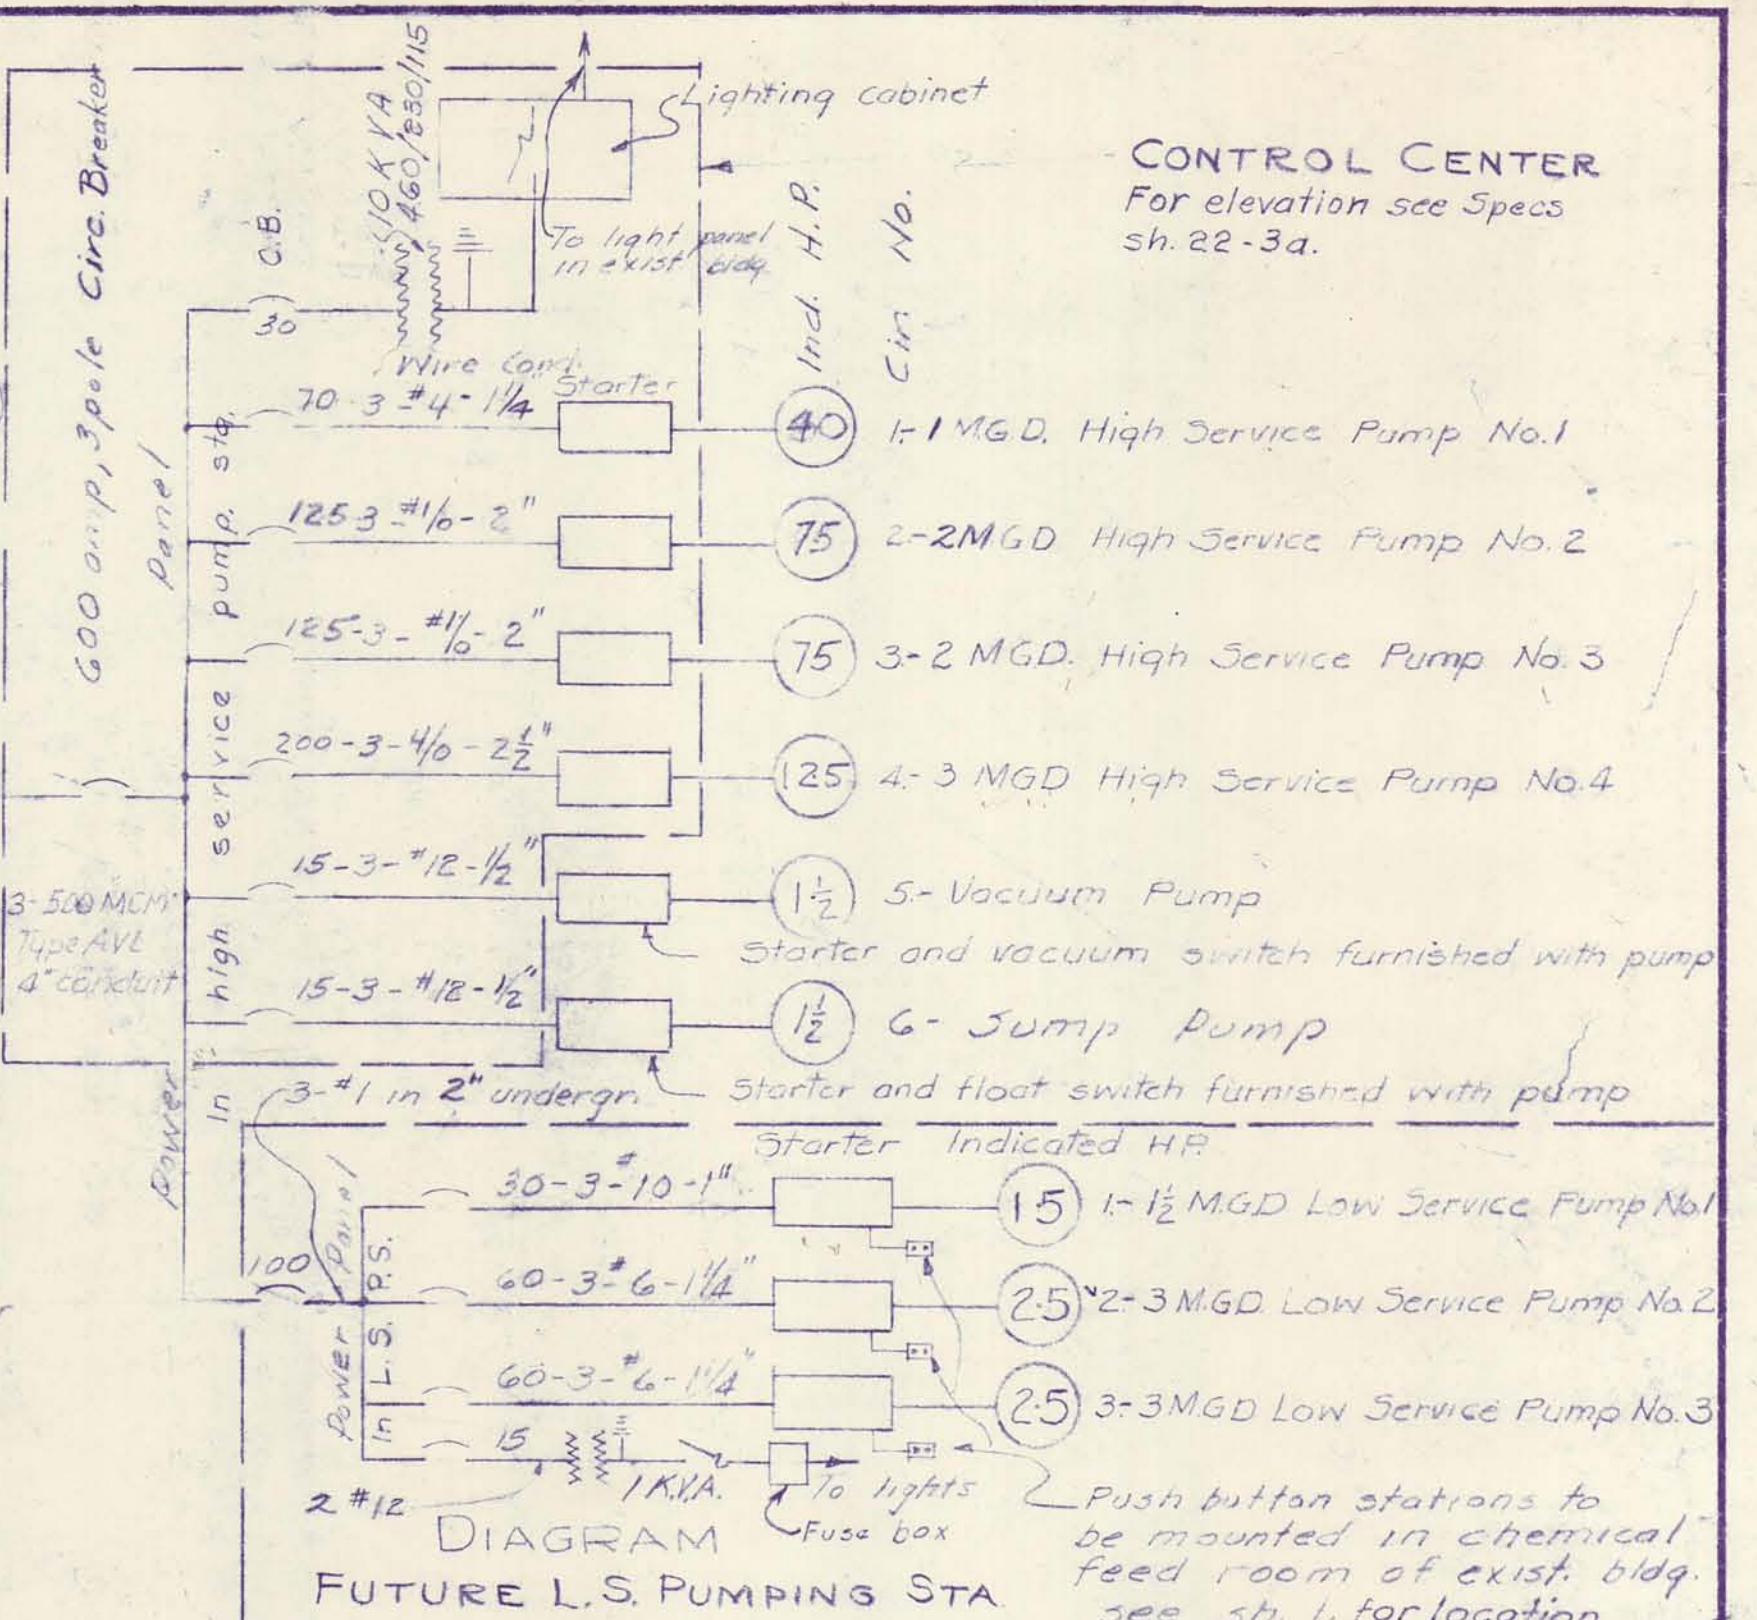 600 amp, 3 pole Circ. Breaker
Panel
C.B.
10 KVA
460/230/115
Lighting cabinet
To light panel
in exist bldg.
Ind. H.P.
Cir No.
CONTROL CENTER
For elevation see Specs
sh. 22-3a.
30
Wire Cond.
Starter
70-3-#4-1¼
40
1-1 M.G.D. High Service Pump No.1
125-3-#1/0-2"
75
2-2 MGD High Service Pump No.2
125-3-#1/0-2"
75
3-2 MGD. High Service Pump No.3
200-3-4/0-2½"
125
4-3 MGD High Service Pump No.4
15-3-#12-½"
1½
5-Vacuum Pump
Starter and vacuum switch furnished with pump
15-3-#12-½"
1½
6-Sump Pump
Starter and float switch furnished with pump
In high service pump sta.
3-500 MCM
Type AVL
4" conduit
Power
3-#1 in 2" undergr.
Starter Indicated H.P.
100
Power Panel
In L.S. P.S.
30-3-#10-1"
15
1-1½ M.G.D Low Service Pump No.1
60-3-#6-1¼"
25
2-3 M.G.D. Low Service Pump No.2
60-3-#6-1¼"
25
3-3 M.G.D Low Service Pump No.3
15
1 K.V.A.
To lights
2 #12
Fuse box
Push button stations to
be mounted in chemical
feed room of exist. bldg.
see sh. 1. for location
DIAGRAM
FUTURE L.S. PUMPING STA